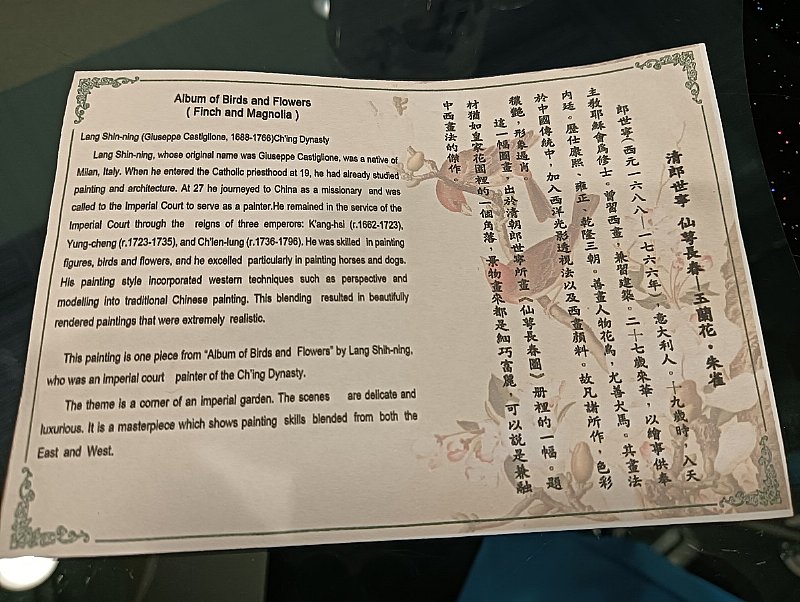 Album of Birds and Flowers
( Finch and Magnolia )
Lang Shin-ning (Giuseppe Castiglione, 1688-1766)Ch'ing Dynasty
Lang Shin-ning, whose original name was Giuseppe Castiglione, was a native of
Milan, Italy. When he entered the Catholic priesthood at 19, he had already studied
painting and architecture. At 27 he journeyed to China as a missionary and was
called to the Imperial Court to serve as a painter.He remained in the service of the
Imperial Court through the reigns of three emperors: K'ang-hsi (r.1662-1723),
Yung-cheng (r.1723-1735), and Ch'ien-lung (r.1736-1796). He was skilled in painting
figures, birds and flowers, and he excelled particularly in painting horses and dogs.
His painting style incorporated western techniques such as perspective and
modelling into traditional Chinese painting. This blending resulted in beautifully
rendered paintings that were extremely realistic.
This painting is one piece from "Album of Birds and Flowers" by Lang Shih-ning,
who was an imperial court painter of the Ch'ing Dynasty.
The theme is a corner of an imperial garden. The scenes are delicate and
luxurious. It is a masterpiece which shows painting skills blended from both the
East and West.
清郎世寧 仙萼長春—玉蘭花・朱雀
郎世寧（西元一六八八—一七六六年），意大利人。十九歲時，入天
主教耶穌會為修士。曾習西畫，兼習建築。二十七歲來華，以繪事供奉
內廷。歷仕康熙、雍正、乾隆三朝。善畫人物花鳥，尤善犬馬。其畫法
於中國傳統中，加入西洋光影透視法以及西畫顏料。故凡諸所作，色彩
穠艷，形象逼肖。
這一幅圖畫，出於清朝郎世寧所畫《仙萼長春圖》册裡的一幅。題
材猶如皇家花園裡的一個角落，景物畫來都是細巧富麗，可以說是兼融
中西畫法的傑作。